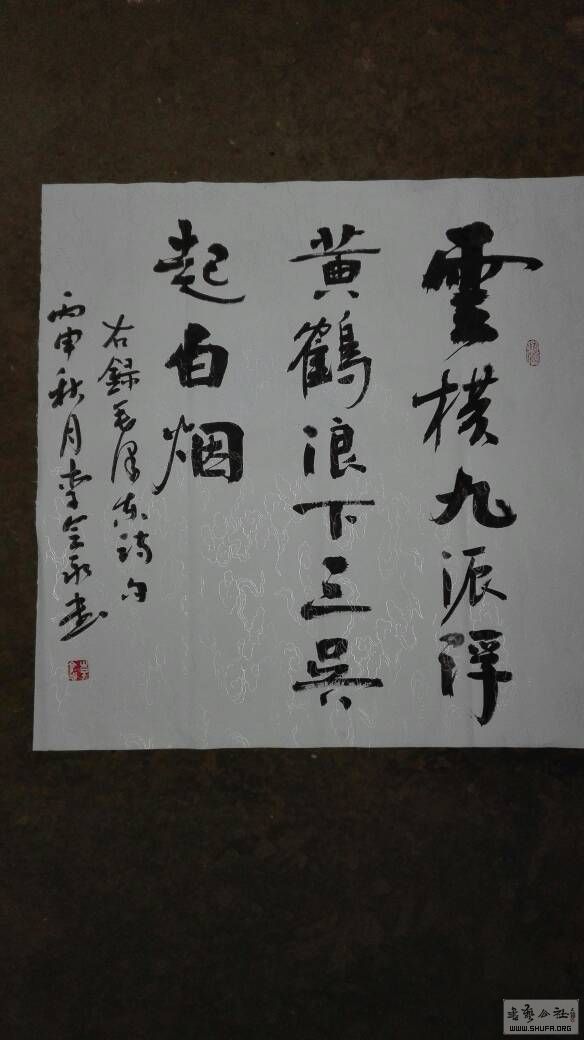 雲横九派浮
黄鶴浪下三吳
起白烟
右録毛澤东詩句
丙申秋月李金永書
书艺公社
WWW.SHUFA.ORG